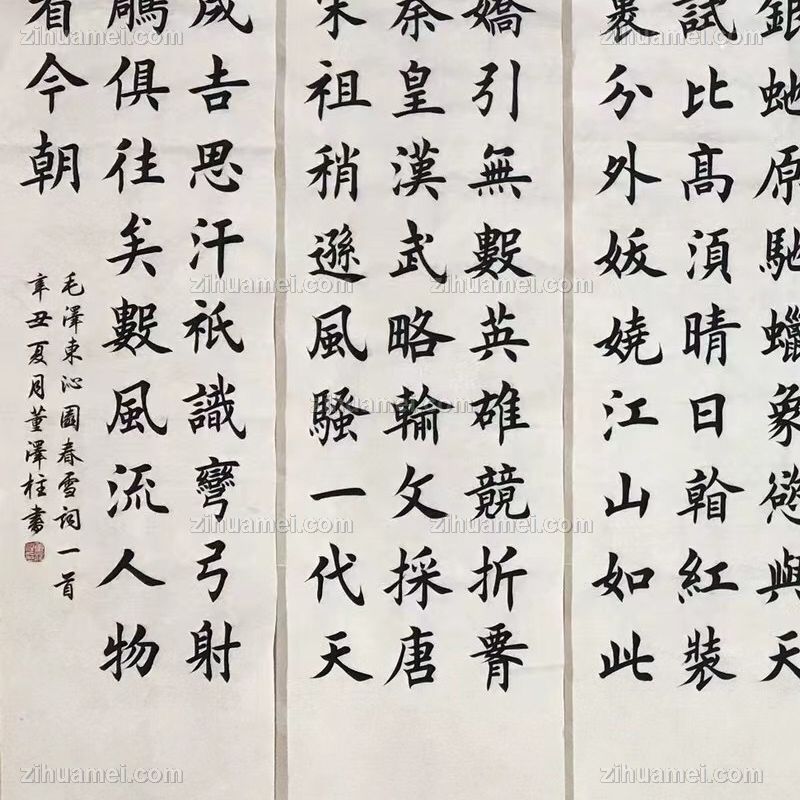 銀虵原馳蠟象慾與天
試比髙湏晴日看紅裝
裹分外妖嬈江山如此
嬌引無數英雄競折腰
秦皇漢武略輸文採唐
宋祖稍遜風騷一代天
成吉思汗祇識彎弓射
鵰俱往矣數風流人物
看今朝
毛澤東沁園春雪詞一首
辛丑夏月董澤柱書
zihuamei.com